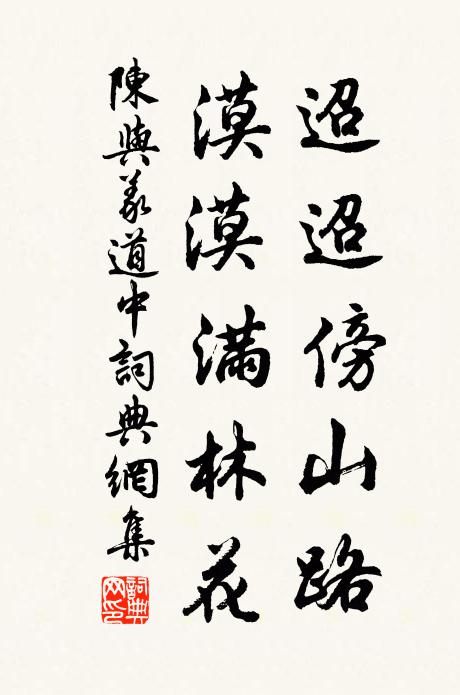 迢迢傍山路
漠漠满林花
陳與義道中詞典網集
詞典网印